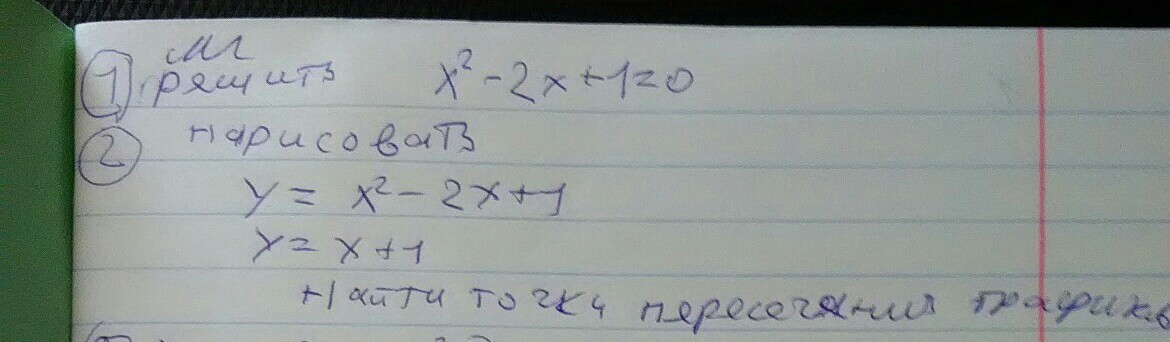 1 решить x² - 2x + 1 = 0
2 нарисовать
y = x² - 2x + 1
y = x + 1
найти точки пересечения